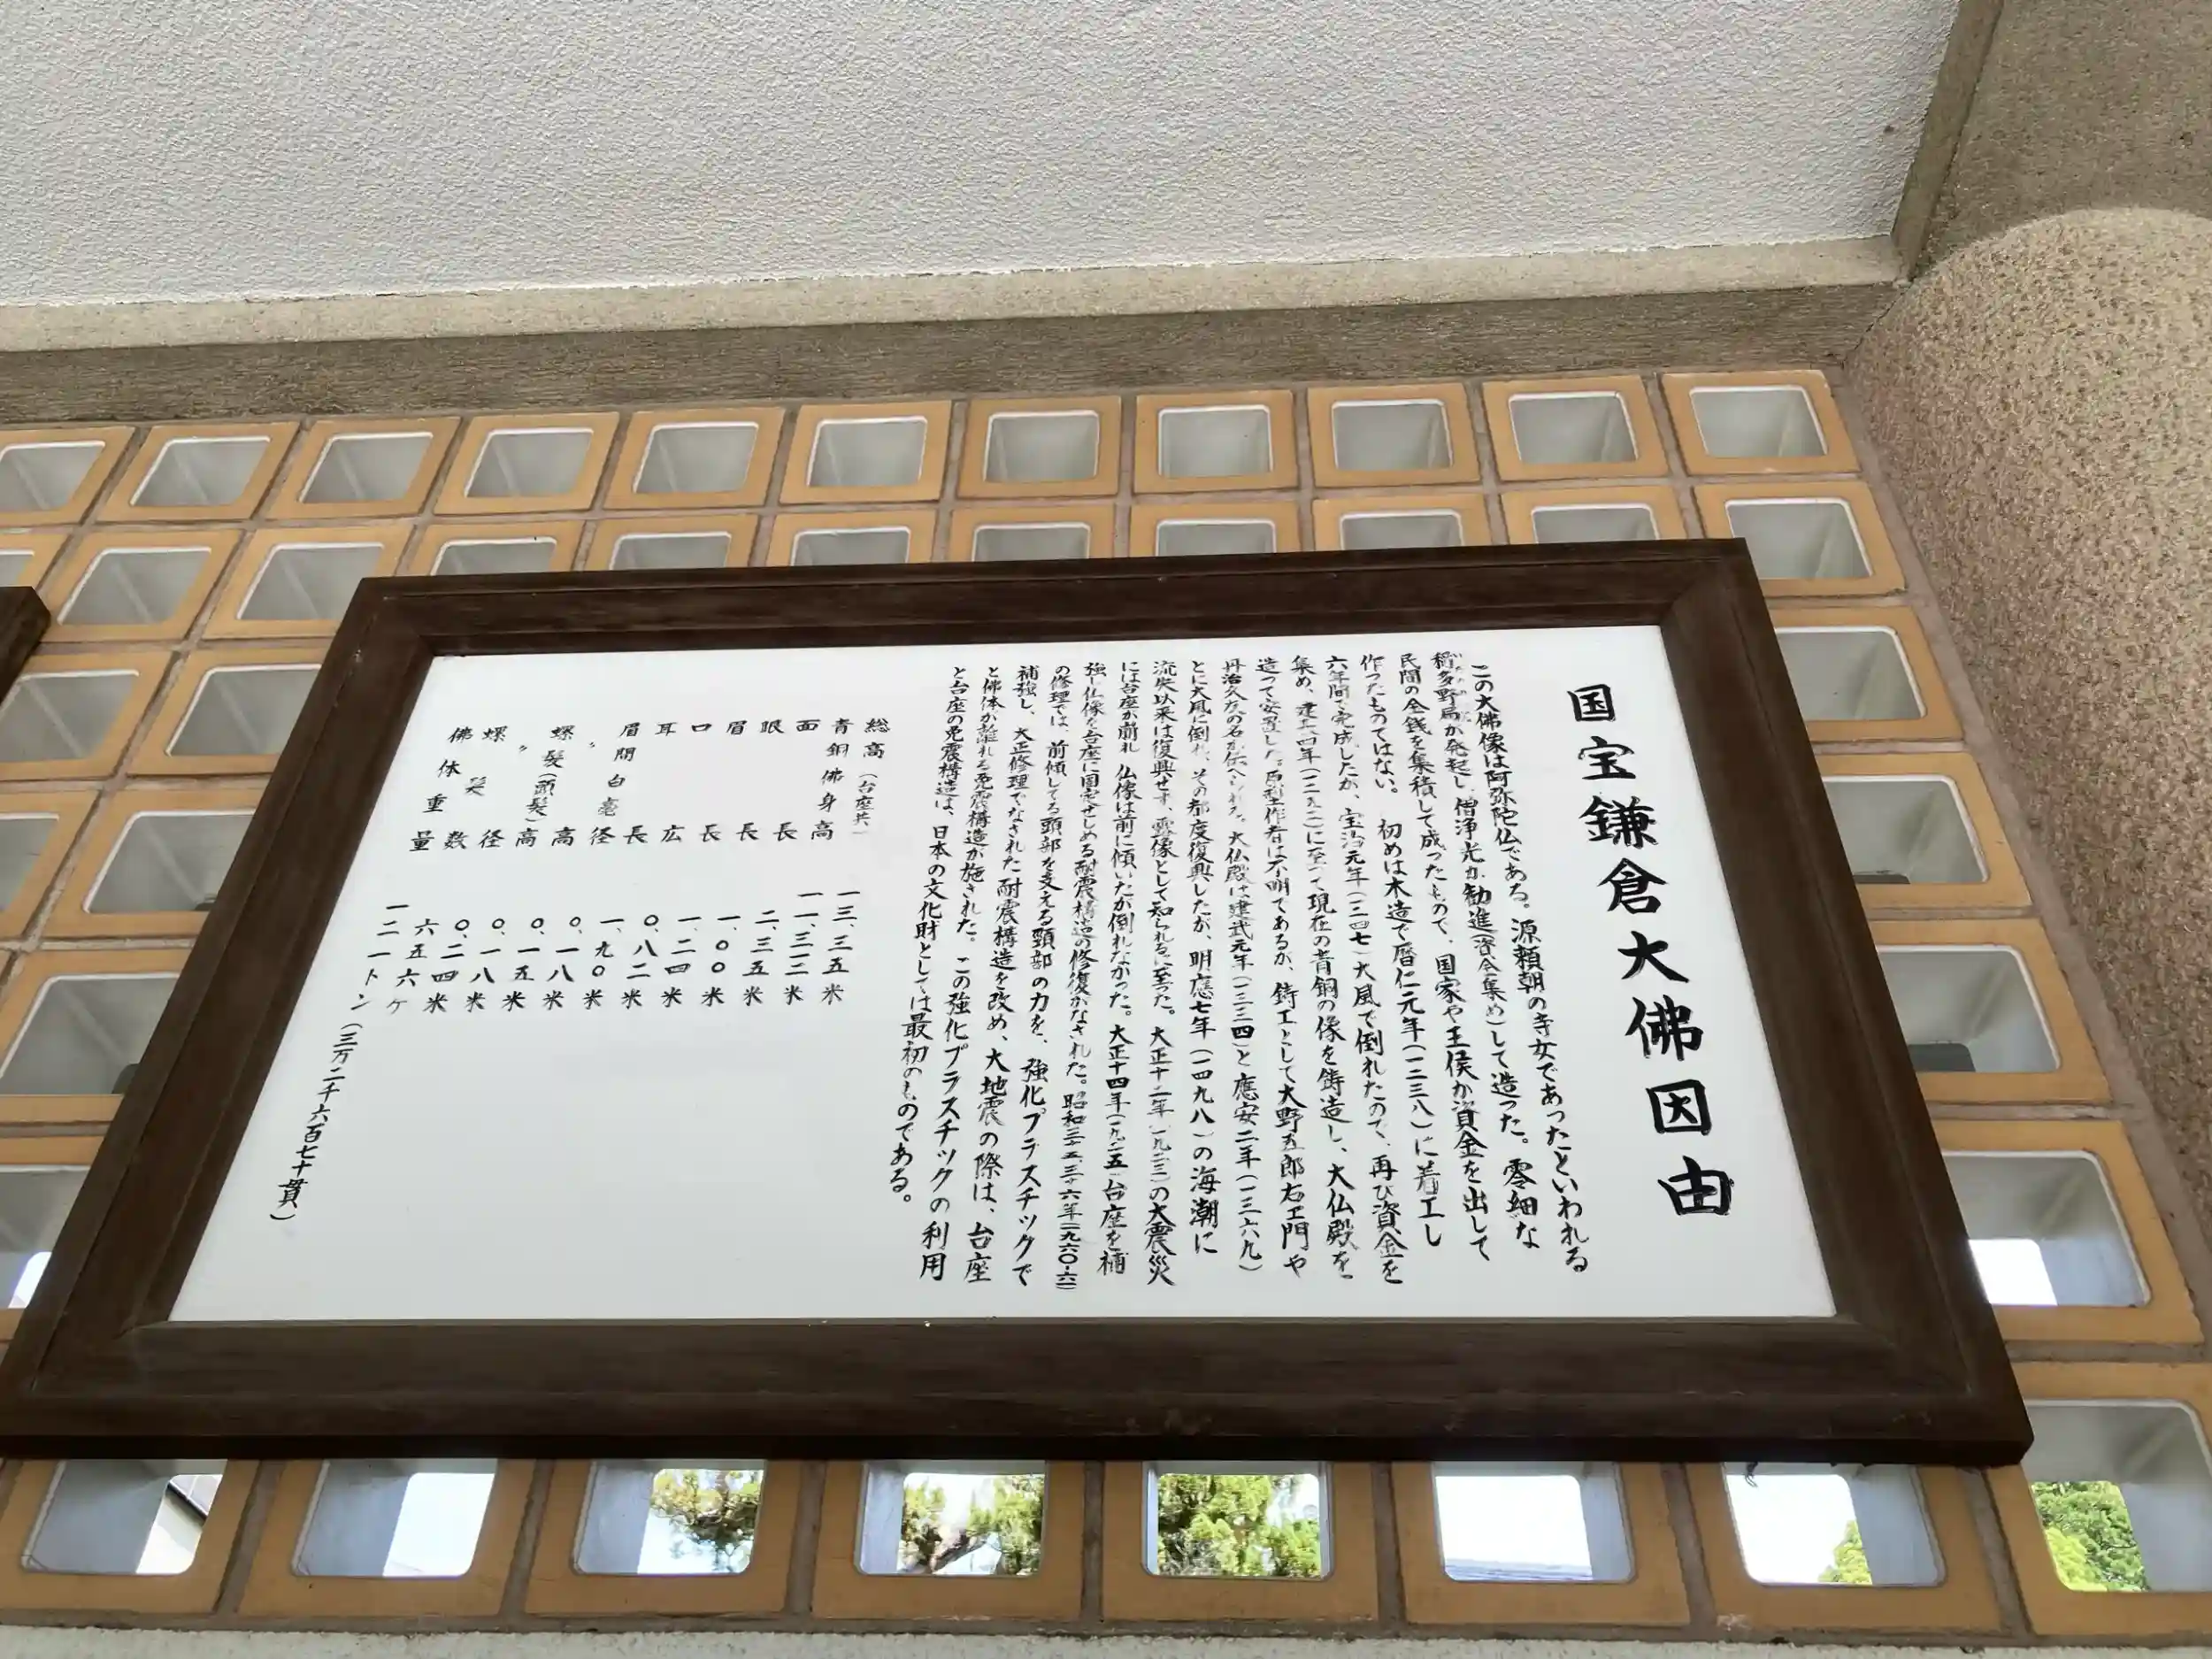 国宝鎌倉大佛因由
この大佛像は阿弥陀仏である。源頼朝の寺女であったといわれる
稲多野局が発起し、僧浄光が勧進(資金集め)して造った。零細な
民間の金銭を集積して成ったもので、国家や王侯が資金を出して
作ったものではない。 初めは木造で暦仁元年(一二三八)に着工し
六年間で完成したが、宝治元年(一二四七)大風で倒れたので、再び資金を
集め、建長四年(一二五二)に至って現在の青銅の像を鋳造し、大仏殿を
造って安置した。原型作者は不明であるが、鋳工として大野五郎右エ門や
丹治久友の名が伝へられる。大仏殿は建武元年(一三三四)と應安二年(一三六九)
とに大風に倒れ、その都度復興したが、明應七年(一四九八)の海潮に
流失以来は復興せず、露像として知られるに至った。大正十二年(一九二三)の大震災
には台座が崩れ 仏像は前に傾いたが倒れなかった。大正十四年(一九二五)台座を補
強し仏像を台座に固定せしめる耐震構造の修復がなされた。昭和三十五、三十六年(一九六〇-六一)
の修理では、前傾してる頭部を支える頸部の力を、強化プラスチックで
補強し、大正修理でなされた耐震構造を改め、大地震の際は、台座
と佛体が離れる免震構造が施された。この強化プラスチックの利用
と台座の免震構造は、日本の文化財としては最初のものである。
総高(台座共) 一三、三五米
青銅佛身高 一一、三一二米
面長 二、三五米
眼長 一、〇〇米
眉長 一、二四米
口広 〇、八二米
耳長 一、九〇米
眉間白毫径 〇、一八米
〃高 〇、一五米
螺髪(頭髪)高 〇、一八米
〃径 〇、二四米
螺髪数 六五六ケ
佛体重量 一二一トン(三万二千六百七十貫)